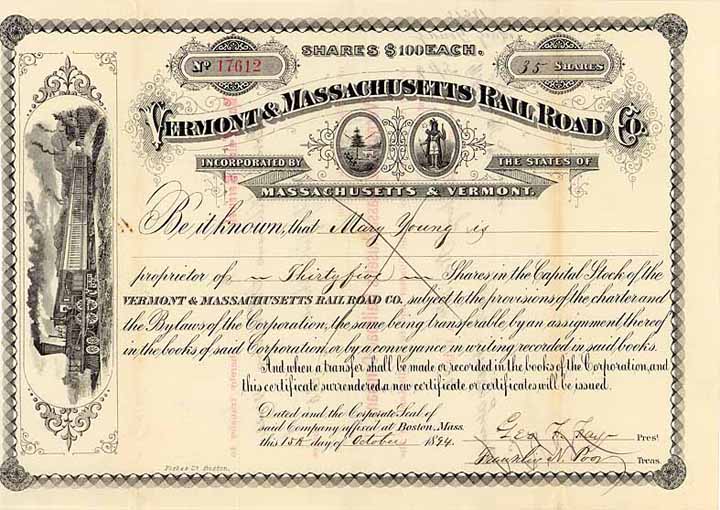 SHARES $100 EACH.
No 17612
35 SHARES
VERMONT & MASSACHUSETTS RAIL ROAD CO.
INCORPORATED BY THE STATES OF
MASSACHUSETTS & VERMONT.
Be it known, that Mary Young is
proprietor of Thirtyfive Shares in the Capital Stock of the
VERMONT & MASSACHUSETTS RAIL ROAD CO. subject to the provisions of the charter and
the Bylaws of the Corporation, the same being transferable by an assignment thereof
in the books of said Corporation, or by a conveyance in writing recorded in said books.
And when a transfer shall be made or recorded in the books of the Corporation, and
this certificate surrendered a new certificate or certificates will be issued.
Dated and the Corporate Seal of
said Company affixed at Boston, Mass.
this 15th day of October 1894.
Geo F. Fay Prest
Franklin N. Poor Treas.
Forbes Co. Boston.